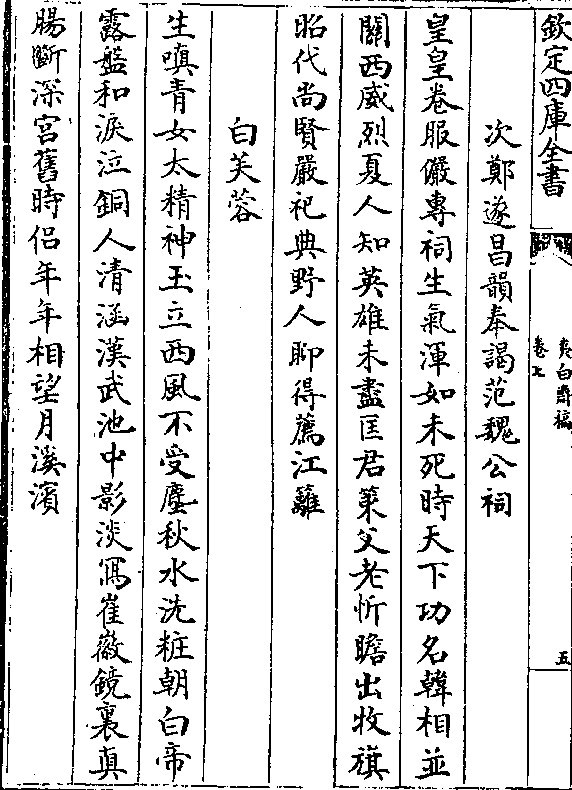 欽定四庫全書
夷白齋稿
卷七
五
次鄭遂昌韻奉謁范魏公祠
皇皇卷服儼專祠生氣渾如未死時天下功名韓相並
關西威烈夏人知英雄未盡匡君策父老忻瞻出牧旗
昭代尚賢嚴祀典野人聊得薦江蘺
白芙蓉
生嗔青女太精神玉立西風不受塵秋水洗粧朝白帝
露盤和淚泣銅人清涵漢武池中影淡寫崔徽鏡裏真
腸斷深宮舊時侣年年相望月溪濱